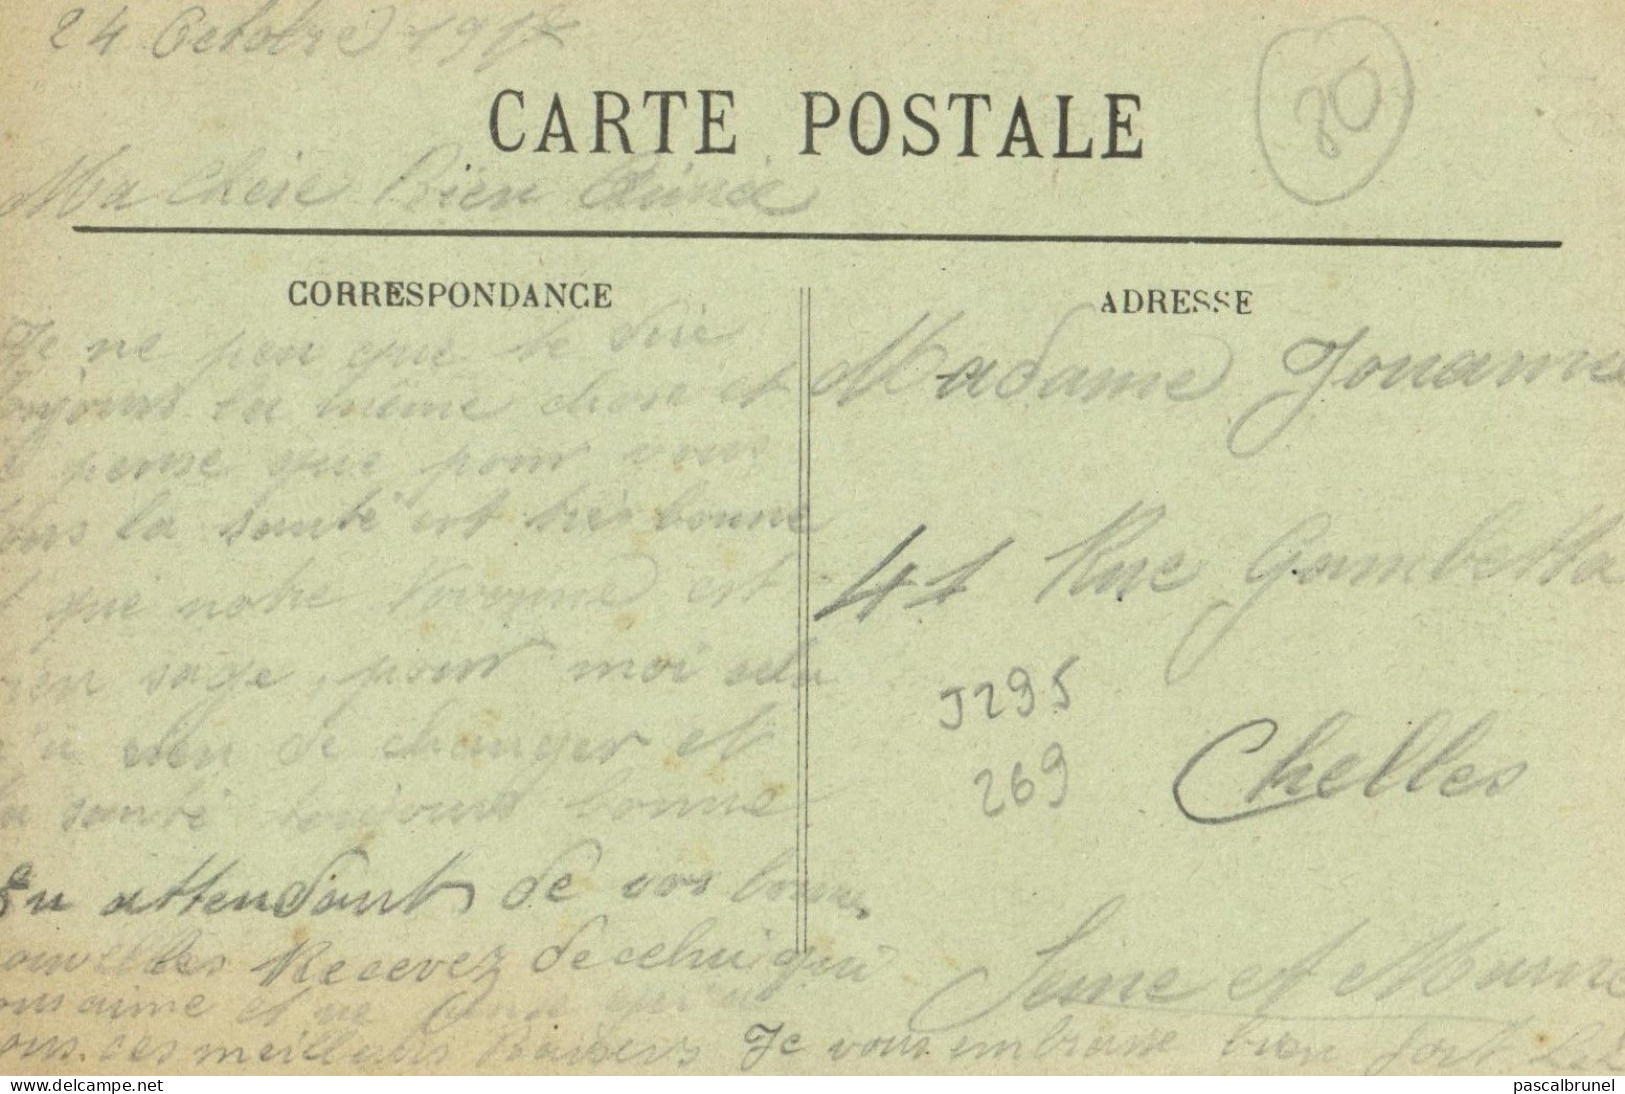 24 Octobre 191
CARTE POSTALE
80
Ma Chere Bien Aimée
CORRESPONDANCE
ADRESSE
Je ne peu que te dire
toujours la même chose et
pense que pour vous
tous la santé est tres bonne
que notre Yvonne est
bien sage, pour moi cela
rien de changer et
la santé toujours bonne
En attendant de vos bonne
nouvelles Recevez de celui qui
vous aime et ne pense qu'a
vous. ces meilleurs Baisers Je vous embrasse bien fort
Madame Jouanne
41 Rue Gambetta
J295
269
Chelles
Seine et Marne
pascalbrunel.com
pascalbrunel